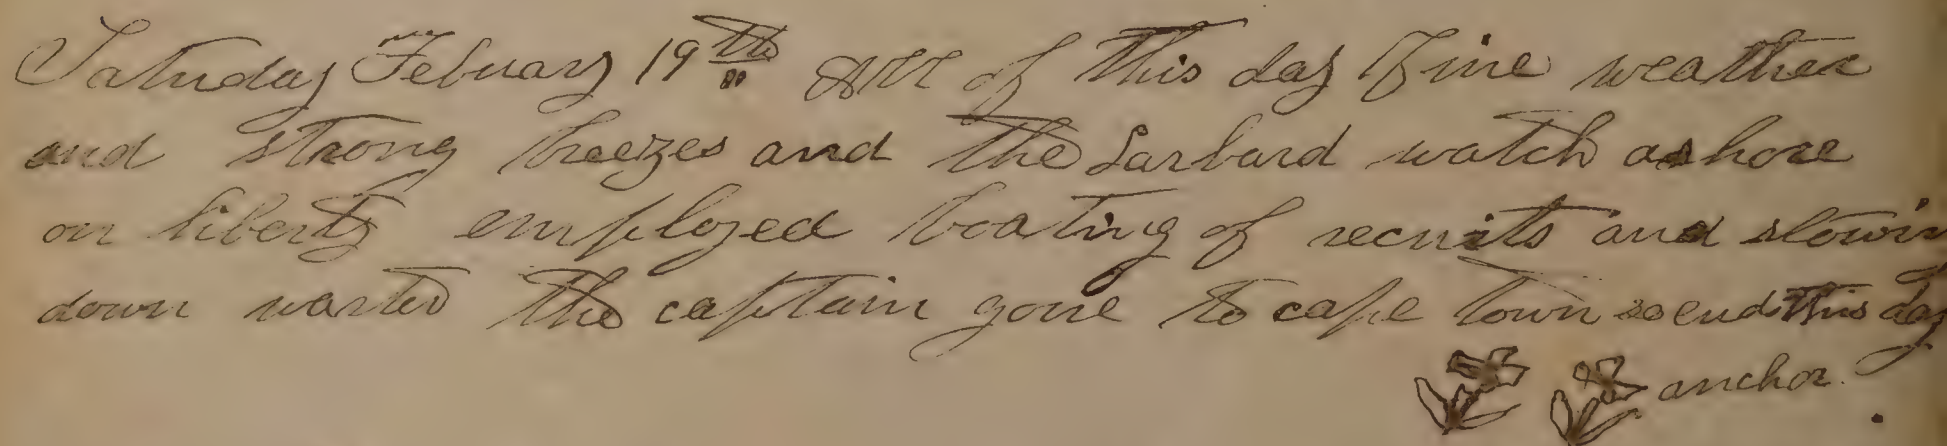 Saturday Febuary 19th All of this day Fine weather
and strong breezes and the Larbard watch ashore
on liberty employed boating of recruits and stowin
down warter the captain gone to cape town so ends this day
anchor.